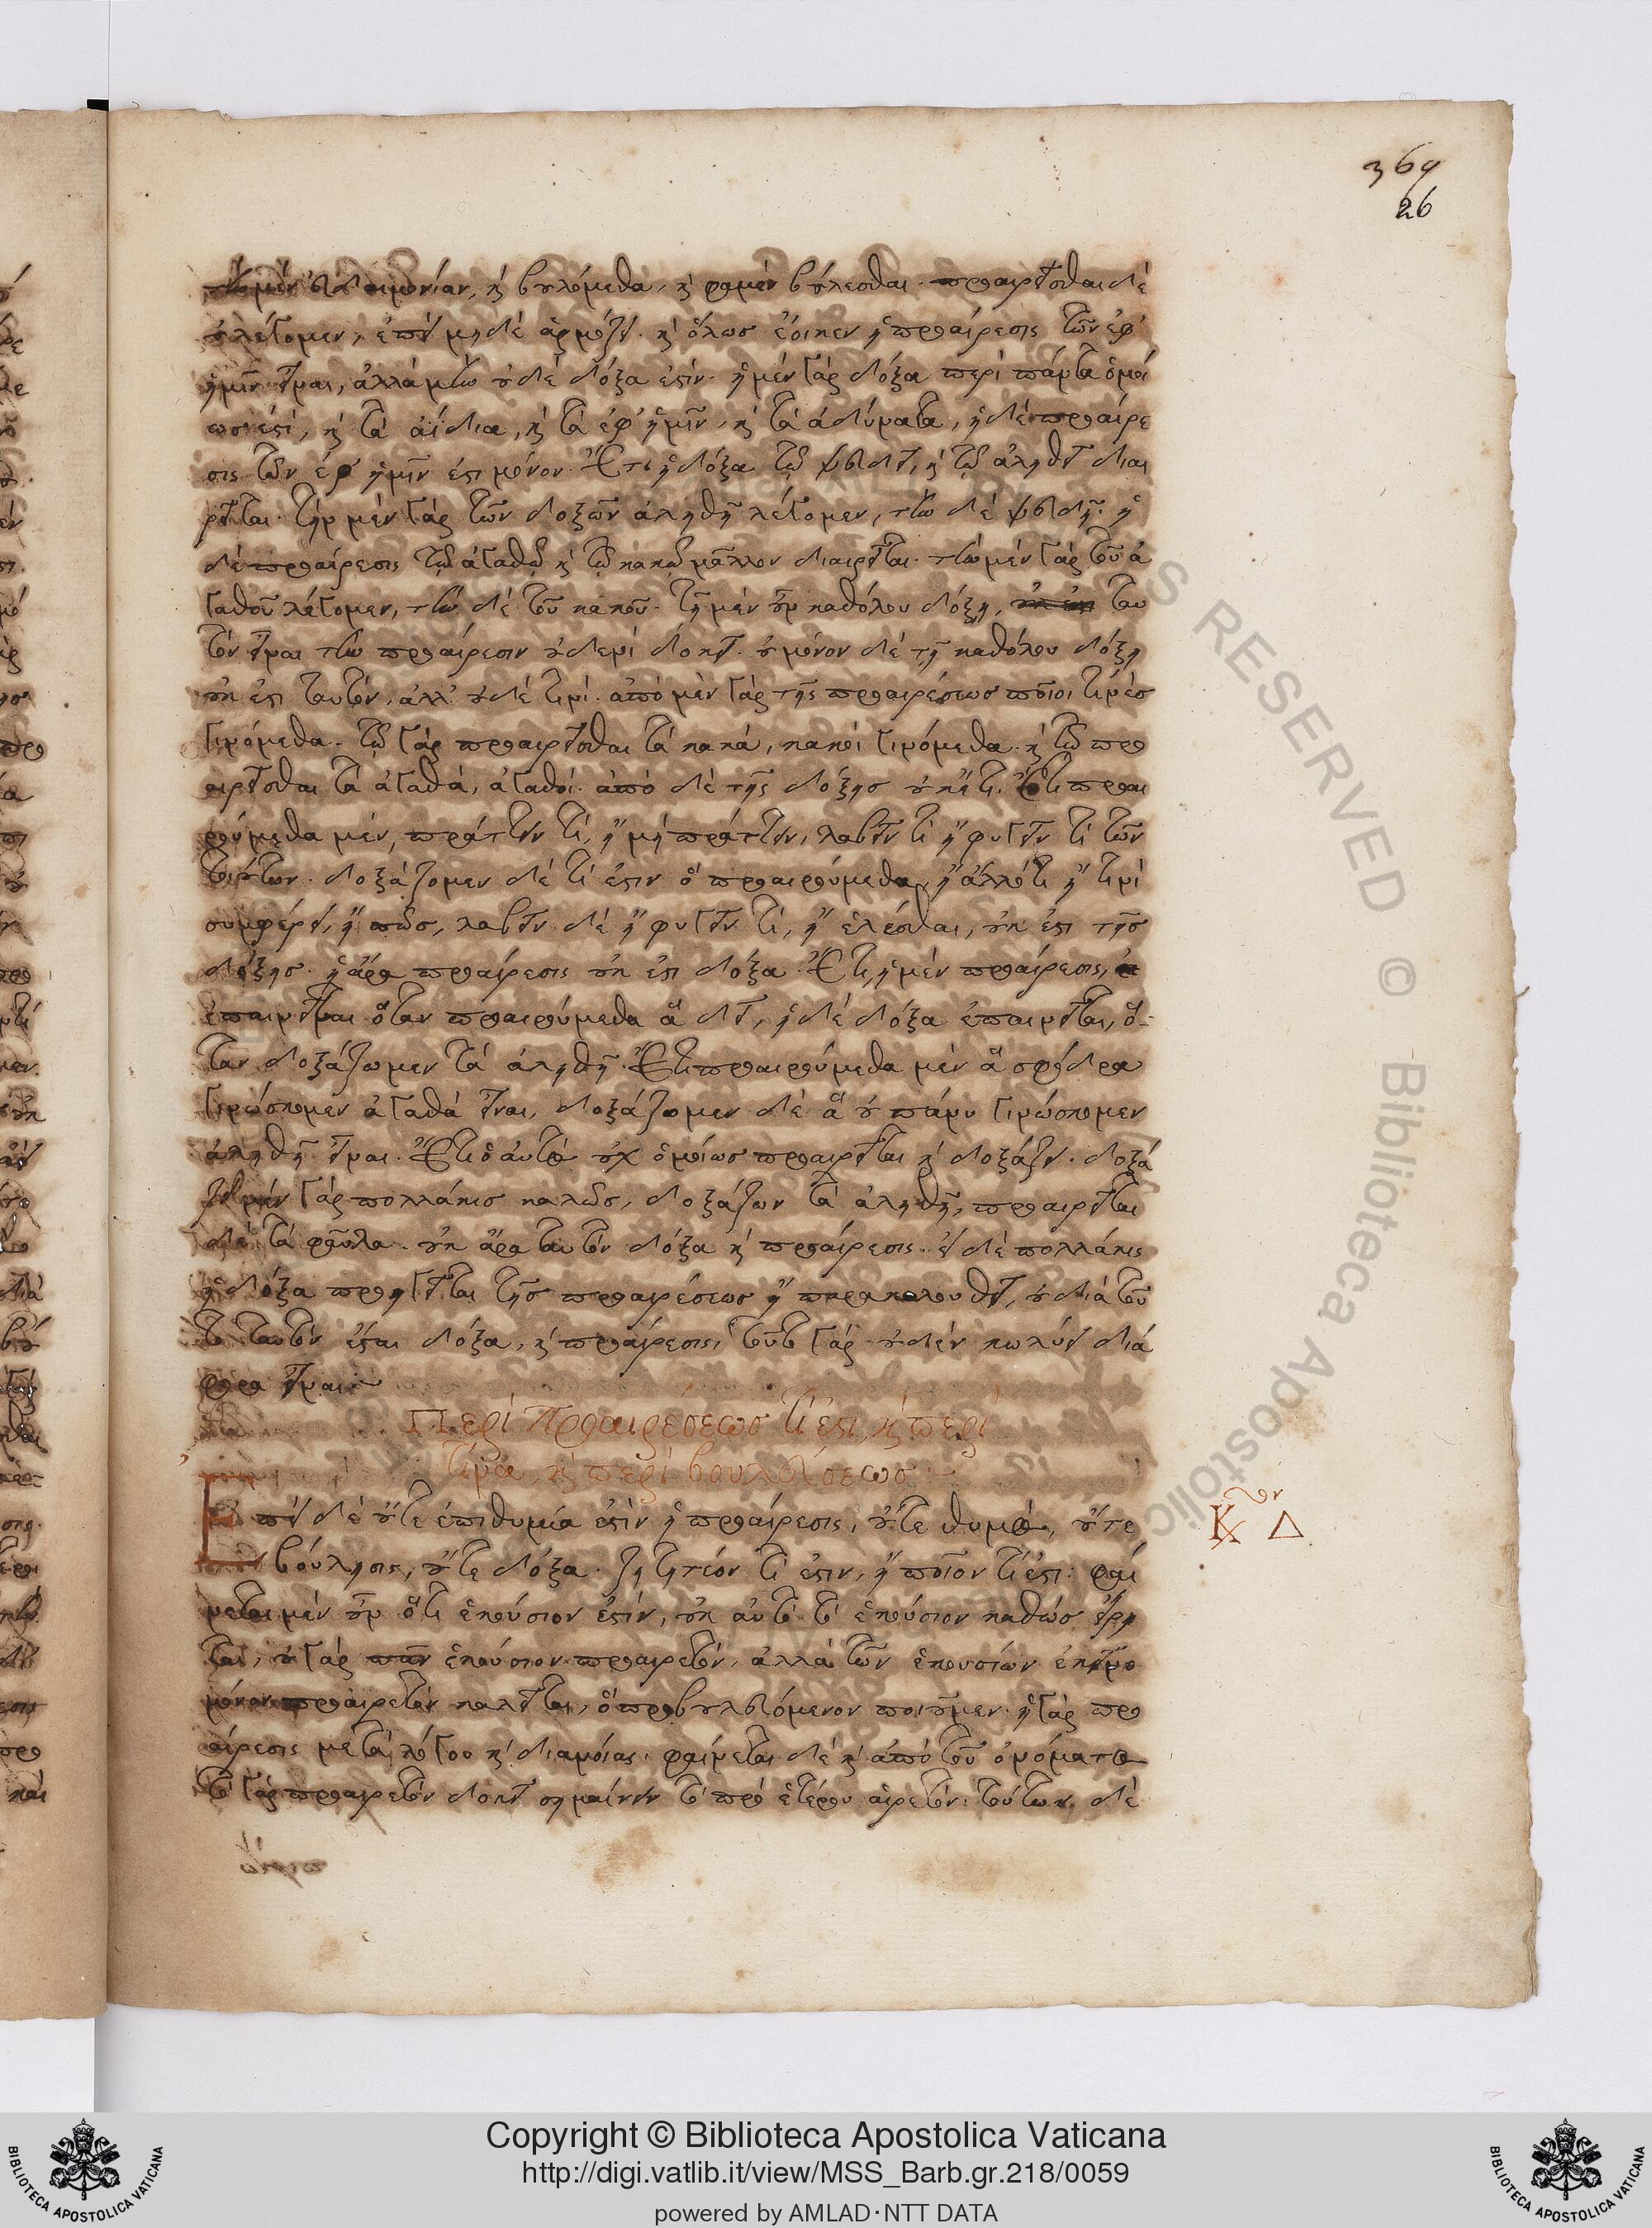 369
26
τὴν μὲν εὐδαιμονίαν, καὶ βουλόμεθα, καὶ φαμὲν βούλεσθαι. προαιρεῖσθαι δὲ
οὐ λέγομεν, ἐπεὶ μηδὲ ἁρμόζει. καὶ ὅλως ἔοικεν ἡ προαίρεσις τῶν ἐφ'
ἡμῖν εἶναι, ἀλλὰ μὴν οὐδὲ δόξα ἐστίν. ἡ μὲν γὰρ δόξα περὶ πάντα ὁμοί
ως ἐστί, καὶ τὰ ἀΐδια, καὶ τὰ ἐφ' ἡμῖν, καὶ τὰ ἀδύνατα, ἡ δὲ προαίρε
σις τῶν ἐφ' ἡμῖν ἐστι μόνον. Ἔτι ἡ δόξα τῷ ψευδεῖ, καὶ τῷ ἀληθεῖ διαι
ρεῖται. τὴν μὲν γὰρ τῶν δοξῶν ἀληθῆ λέγομεν, τὴν δὲ ψευδῆ. ἡ
δὲ προαίρεσις τῷ ἀγαθῷ καὶ τῷ κακῷ μᾶλλον διαιρεῖται. τὴν μὲν γὰρ τοῦ ἀ
γαθοῦ λέγομεν, τὴν δὲ τοῦ κακοῦ. τῇ μὲν οὖν καθόλου δόξῃ, οὐκ ἐστι ταυ
τὸν εἶναι τὴν προαίρεσιν οὐδενὶ δοκεῖ. οὐ μόνον δὲ τῇ καθόλου δόξῃ
οὐκ ἔστι ταυτὸν, ἀλλ' οὐδέ τινί. ἀπὸ μὲν γὰρ τῆς προαιρέσεως ποῖοι τινὲς
γινόμεθα. τῷ γὰρ προαιρεῖσθαι τὰ κακά, κακοὶ γινόμεθα. καὶ τῷ προ
αιρεῖσθαι τὰ ἀγαθά, ἀγαθοί. ἀπὸ δὲ τῆς δόξης οὐκέτι. Ἔτι προαι
ρούμεθα μὲν, πράττειν τί, ἢ μὴ πράττειν, λαβεῖν τι ἢ φυγεῖν τι τῶν
τοιούτων. δοξάζομεν δὲ τί ἐστιν ὃ προαιρούμεθα, ἢ ἄλλό τι ἢ τινὶ
συμφέρει, ἢ πῶς, λαβεῖν δὲ ἢ φυγεῖν τί, ἢ ἑλέσθαι, οὐκ ἔστι τῆς
δόξης. ἡ ἄρα προαίρεσις οὐκ ἔστι δόξα. Ἔτι, ἡ μὲν προαίρεσις,
ἐπαινεῖται ὅταν προαιρούμεθα ἃ δεῖ, ἡ δὲ δόξα ἐπαινεῖται, ὅ-
ταν δοξάζωμεν τὰ ἀληθῆ. Ἔτι προαιρούμεθα μὲν ἃ σφόδρα
γινώσκομεν ἀγαθὰ εἶναι, δοξάζομεν δὲ ἃ οὐ πάνυ γινώσκομεν
ἀληθῆ εἶναι. Ἔτι ὁ αὐτὸς οὐχ ὁμοίως προαιρεῖται καὶ δοξάζει. δοξά
ζει μὲν γὰρ πολλάκις καλῶς, δοξάζων τὰ ἀληθῆ, προαιρεῖται
δὲ τὰ φαῦλα. οὐκ ἄρα ταυτὸν δόξα καὶ προαίρεσις. εἰ δὲ πολλάκις
ἡ δόξα προηγεῖται τῆς προαιρέσεως ἢ παρακολουθεῖ, οὐ διὰ τοῦ
το ταυτὸν ἔσται δόξα, καὶ προαίρεσις, τοῦτο γὰρ οὐδὲν κωλύει διά
φορα εἶναι
Περὶ προαιρέσεως τί ἐστι, καὶ περὶ
τίνα, καὶ περὶ βουλεύσεως
Ἐπεὶ δὲ οὔτε ἐπιθυμία ἐστὶν ἡ προαίρεσις, οὔτε θυμὸς, οὔτε
βούλησις, οὔτε δόξα. ζητητέον τί ἐστιν, ἢ ποῖον τί ἐστι. φαί
νεται μὲν οὖν ὅτι ἑκούσιον ἐστίν, οὐκ αὐτὸ τὸ ἑκούσιον καθὼς εἴρη
ται, οὐ γὰρ πᾶν ἑκούσιον προαιρετὸν, ἀλλὰ τῶν ἑκουσίων ἐκεῖνο
μόνον προαιρετὸν καλεῖται, ὃ προβουλευόμενον ποιοῦμεν. ἡ γὰρ προ
αίρεσις μετὰ λόγου καὶ διανοίας. φαίνεται δὲ καὶ ἀπὸ τοῦ ὀνόματος
τὸ γὰρ προαιρετὸν δοκεῖ σημαίνειν τὸ πρὸ ἑτέρου αἱρετόν. τούτων δὲ
Κων Δ
Copyright © Biblioteca Apostolica Vaticana
http://digi.vatlib.it/view/MSS_Barb.gr.218/0059
powered by AMLAD·NTT DATA
BIBLIOTECA APOSTOLICA VATICANA
BIBLIOTECA APOSTOLICA VATICANA